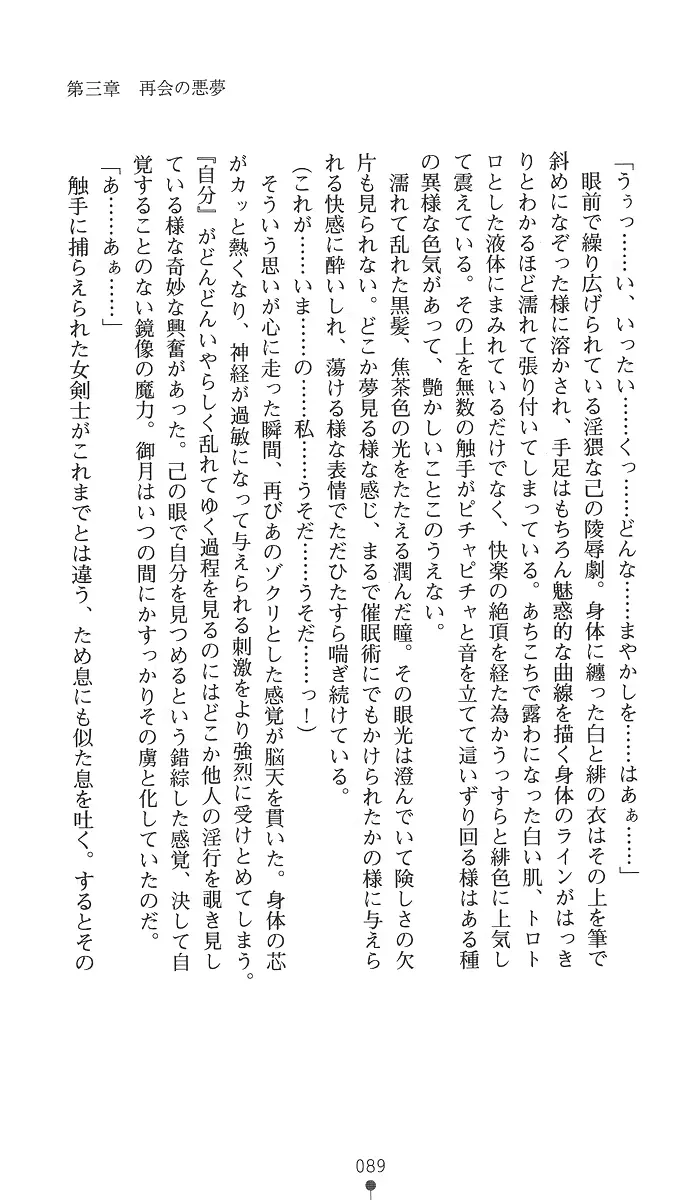 第三章　再会の悪夢
「うぅっ……い、いったい……くっ……どんな……まやかしを……はあぁ……」
　眼前で繰り広げられている淫猥な己の陵辱劇。身体に纏った白と緋の衣はその上を筆で
斜めになぞった様に溶かされ、手足はもちろん魅惑的な曲線を描く身体のラインがはっき
りとわかるほど濡れて張り付いてしまっている。あちこちで露わになった白い肌、トロト
ロとした液体にまみれているだけでなく、快楽の絶頂を経た為かうっすらと緋色に上気し
て震えている。その上を無数の触手がピチャピチャと音を立てて這いずり回る様はある種
の異様な色気があって、艶かしいことこのうえない。
　濡れて乱れた黒髪、焦茶色の光をたたえる潤んだ瞳。その眼光は澄んでいて険しさの欠
片も見られない。どこか夢見る様な感じ、まるで催眠術にでもかけられたかの様に与えら
れる快感に酔いしれ、蕩ける様な表情でただひたすら喘ぎ続けている。
（これが……いま……の……私……うそだ……うそだ……っ！）
　そういう思いが心に走った瞬間、再びあのゾクリとした感覚が脳天を貫いた。身体の芯
がカッと熱くなり、神経が過敏になって与えられる刺激をより強烈に受けとめてしまう。
『自分』がどんどんいやらしく乱れてゆく過程を見るのにはどこか他人の淫行を覗き見し
ている様な奇妙な興奮があった。己の眼で自分を見つめるという錯綜した感覚、決して自
覚することのない鏡像の魔力。御月はいつの間にかすっかりその虜と化していたのだ。
「あ……あぁ……」
　触手に捕らえられた女剣士がこれまでとは違う、ため息にも似た息を吐く。するとその
089